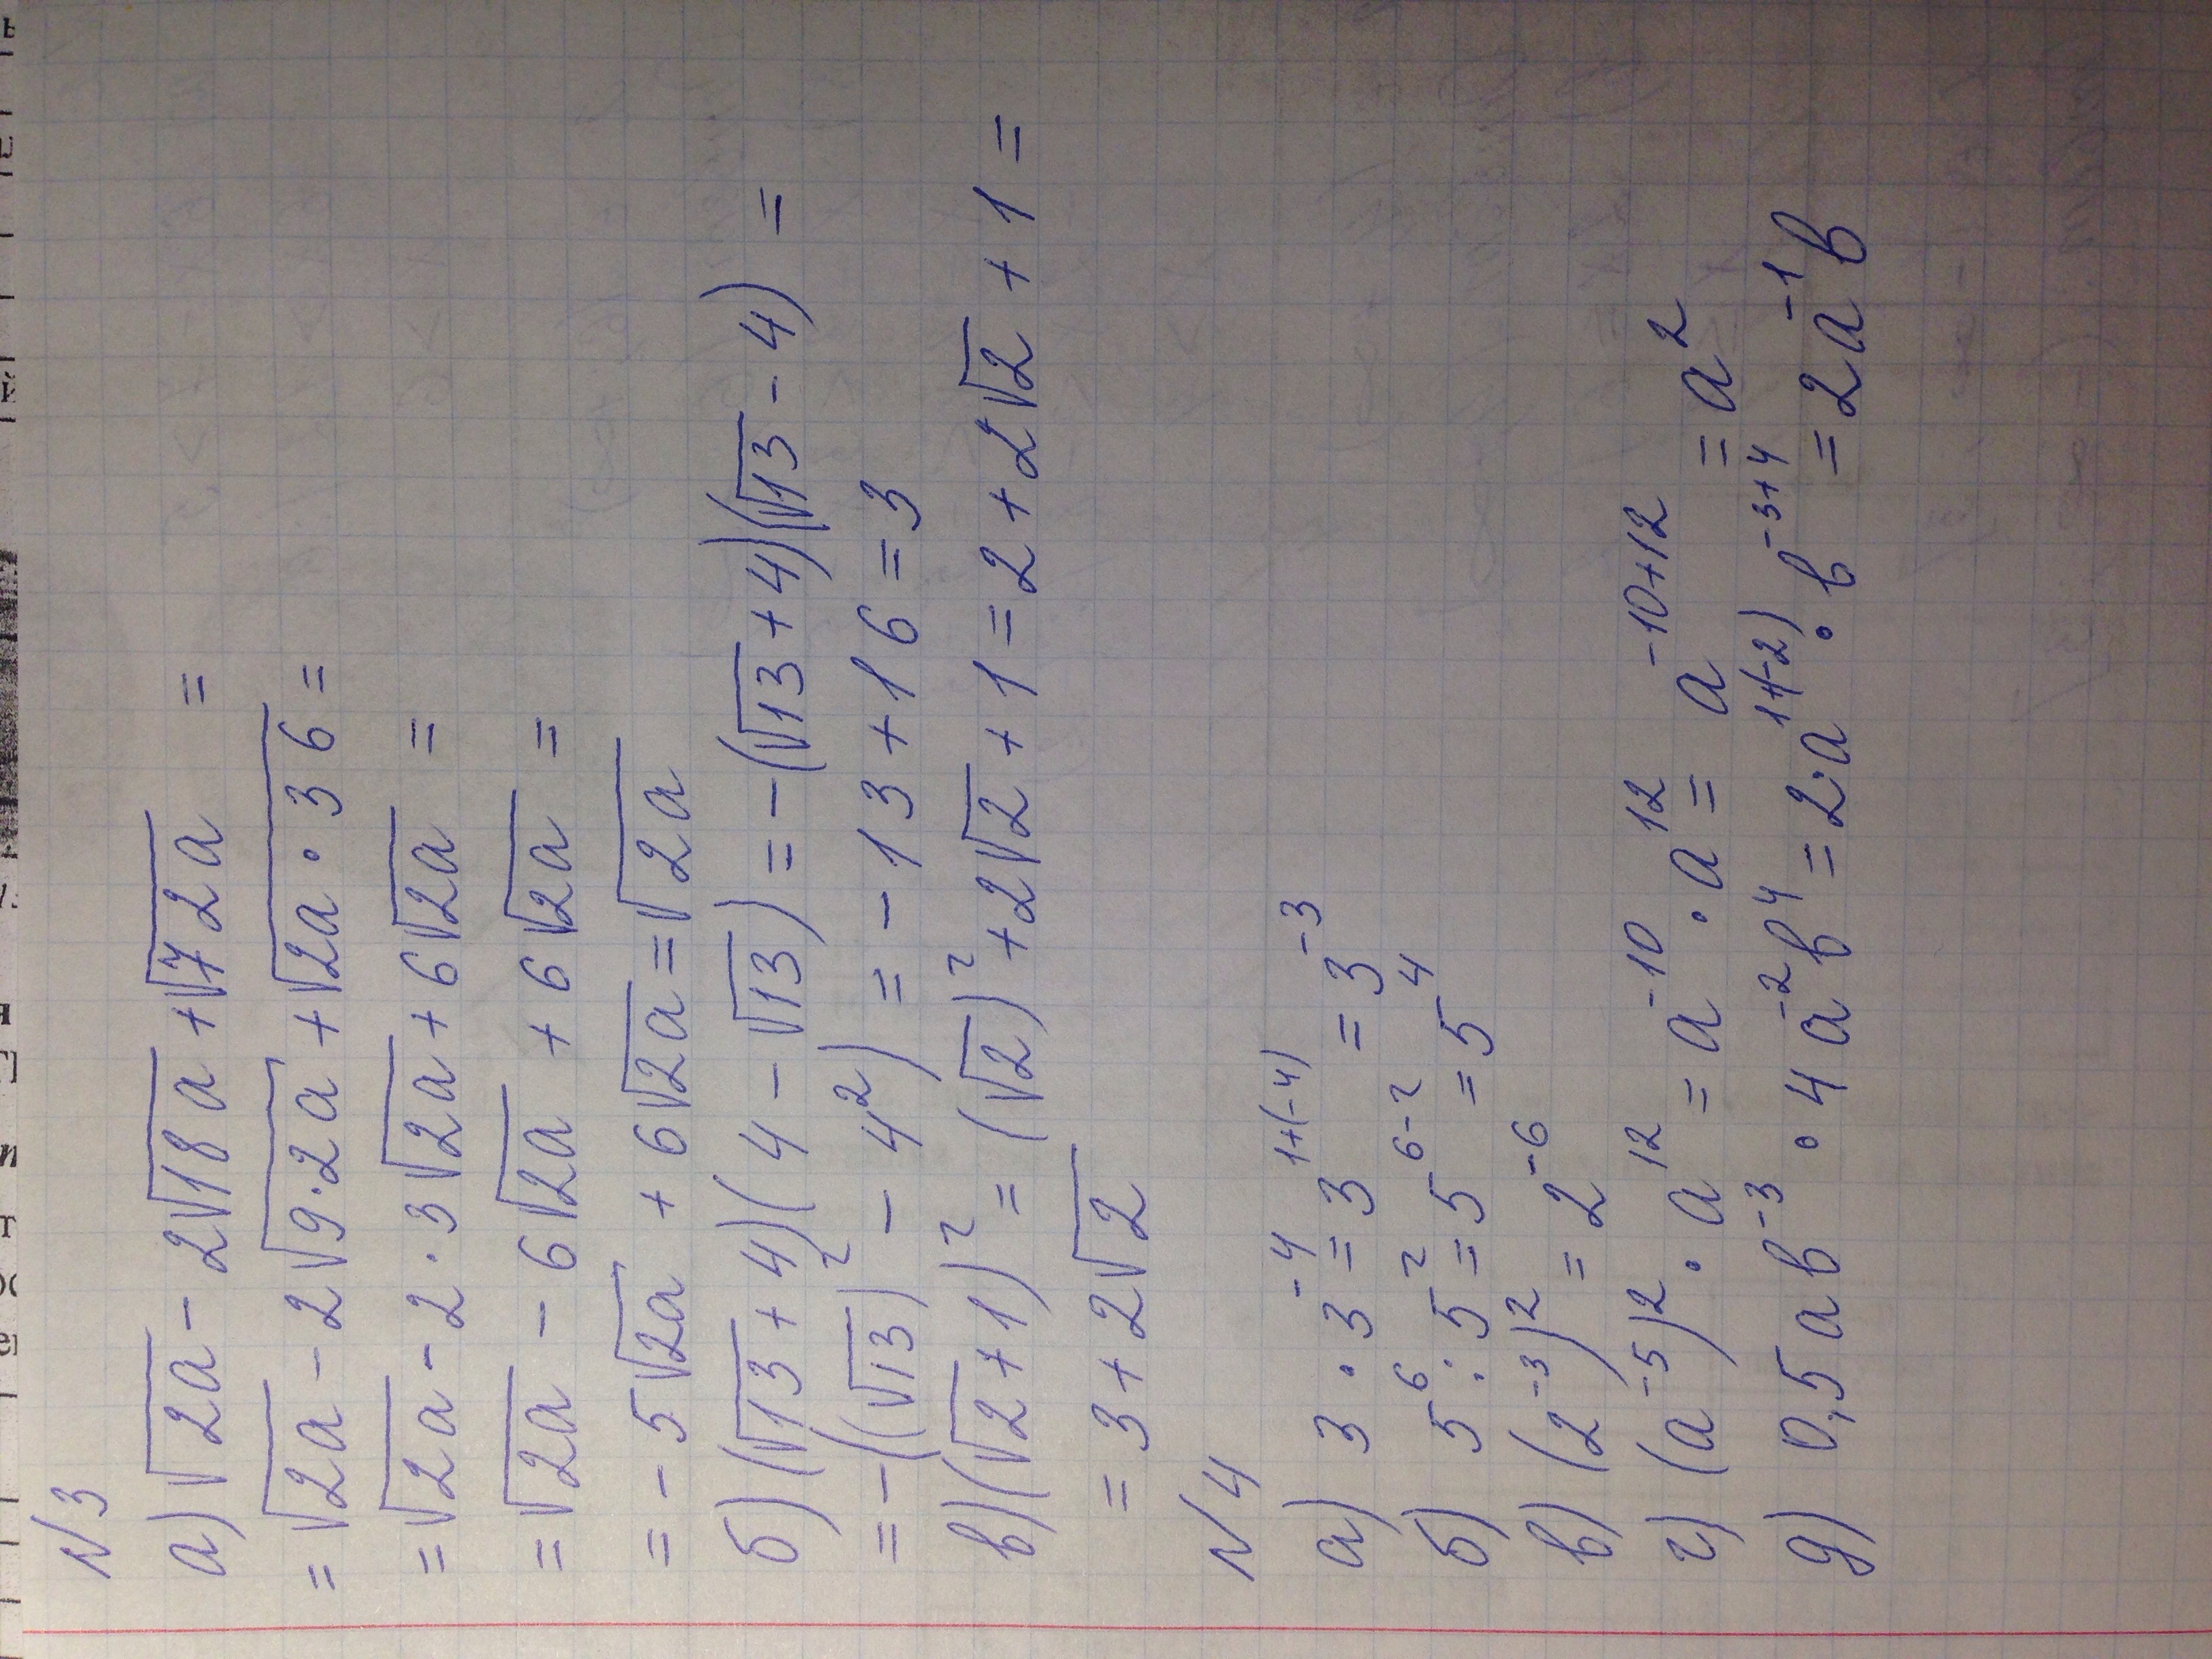 N3
а) √2a - 2√18a + √72a =
= √2a - 2√9·2a + √2a·36 =
= √2a - 2·3√2a + 6√2a =
= √2a - 6√2a + 6√2a =
= -5√2a + 6√2a = √2a
б) (√13 + 4)(4 - √13) = -(√13 + 4)(√13 - 4) =
= -((√13)² - 4²) = -13 + 16 = 3
в) (√2 + 1)² = (√2)² + 2√2 + 1 = 2 + 2√2 + 1 =
= 3 + 2√2
N4
а) 3 · 3⁻⁴ = 3¹⁺⁽⁻⁴⁾ = 3⁻³
б) 5⁶ : 5² = 5⁶⁻² = 5⁴
в) (2⁻³)² = 2⁻⁶
г) (a⁻⁵)² · a¹² = a⁻¹⁰ · a¹² = a⁻¹⁰⁺¹² = a²
д) 0,5ab⁻³ · 4a⁻²b⁴ = 2·a¹⁺⁽⁻²⁾ · b⁻³⁺⁴ = 2a⁻¹b